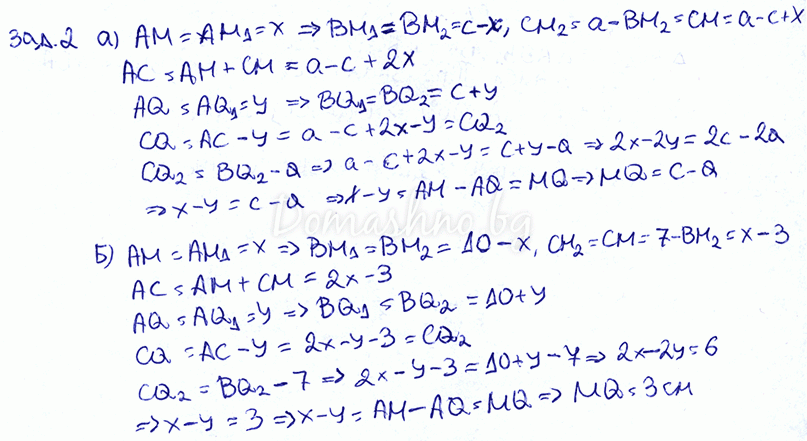 Зад.2 а) AM = AM₁ = x ⇒ BM₁ = BM₂ = c-x, CM₂ = a - BM₂ = CM = a-c+x
AC = AM + CM = a-c+2x
AQ = AQ₁ = y ⇒ BQ₁ = BQ₂ = c+y
CQ = AC - y = a-c+2x-y = CQ₂
CQ₂ = BQ₂ - a ⇒ a-c+2x-y = c+y-a ⇒ 2x-2y = 2c-2a
⇒ x-y = c-a ⇒ x-y = AM - AQ = MQ ⇒ MQ = c-a
Domashno.bg
Б) AM = AM₁ = x ⇒ BM₁ = BM₂ = 10-x, CM₂ = CM = 7-BM₂ = x-3
AC = AM + CM = 2x-3
AQ = AQ₁ = y ⇒ BQ₁ = BQ₂ = 10+y
CQ = AC - y = 2x-y-3 = CQ₂
CQ₂ = BQ₂ - 7 ⇒ 2x-y-3 = 10+y-7 ⇒ 2x-2y = 6
⇒ x-y = 3 ⇒ x-y = AM - AQ = MQ ⇒ MQ = 3 см